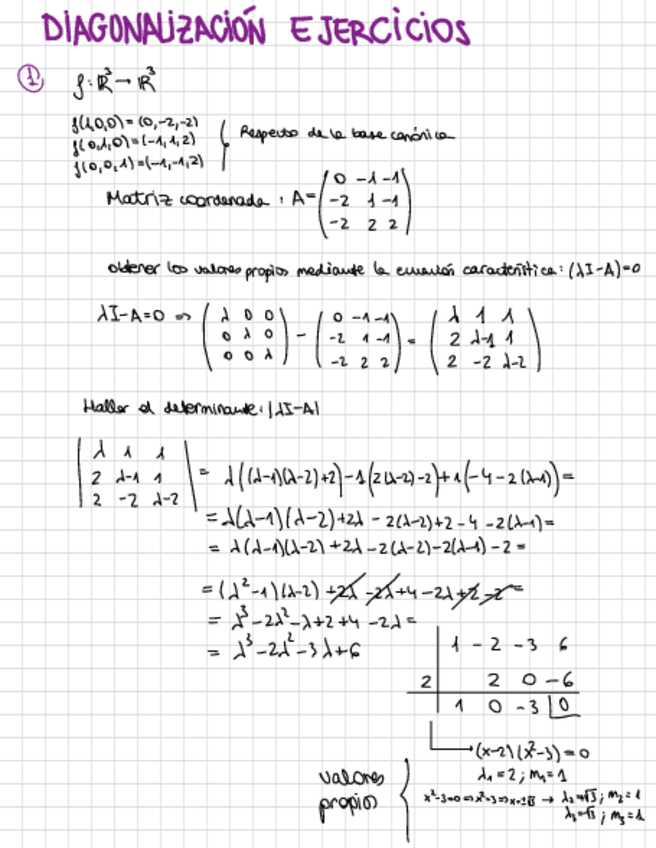 DIAGONALIZACIÓN EJERCICIOS
① f: ℝ³ → ℝ³
f(1,0,0) = (0,-2,-2)
f(0,1,0) = (-1,1,2)
f(0,0,1) = (-1,-1,2)
Respecto de la base canónica
Matriz coordenada : A = ( 0 -1 -1
-2 1 -1
-2 2 2 )
obtener los valores propios mediante la ecuación característica: (λI-A)=0
λI-A=0 => ( λ 0 0 ) - ( 0 -1 -1 ) = ( λ 1 1 )
( 0 λ 0 ) ( -2 1 -1 ) ( 2 λ-1 1 )
( 0 0 λ ) ( -2 2 2 ) ( 2 -2 λ-2 )
Hallar el determinante: |λI-A|
| λ 1 1 |
| 2 λ-1 1 | = λ((λ-1)(λ-2)+2)-1(2(λ-2)-2)+1(-4-2(λ-1))=
| 2 -2 λ-2 |
= λ(λ-1)(λ-2)+2λ-2(λ-2)+2-4-2(λ-1)=
= λ(λ-1)(λ-2)+2λ-2(λ-2)-2(λ-1)-2=
= (λ²-1)(λ-2)+2λ-2λ+4-2λ+2-2=
= λ³-2λ²-λ+2+4-2λ=
= λ³-2λ²-3λ+6
1 -2 -3 6
2 2 0 -6
1 0 -3 0
(x-2)(x²-3)=0
valores propios
λ₁=2; m₁=1
x²-3=0 => x²=3 => x=±√3 → λ₂=√3; m₂=1
λ₃=√3; m₃=1